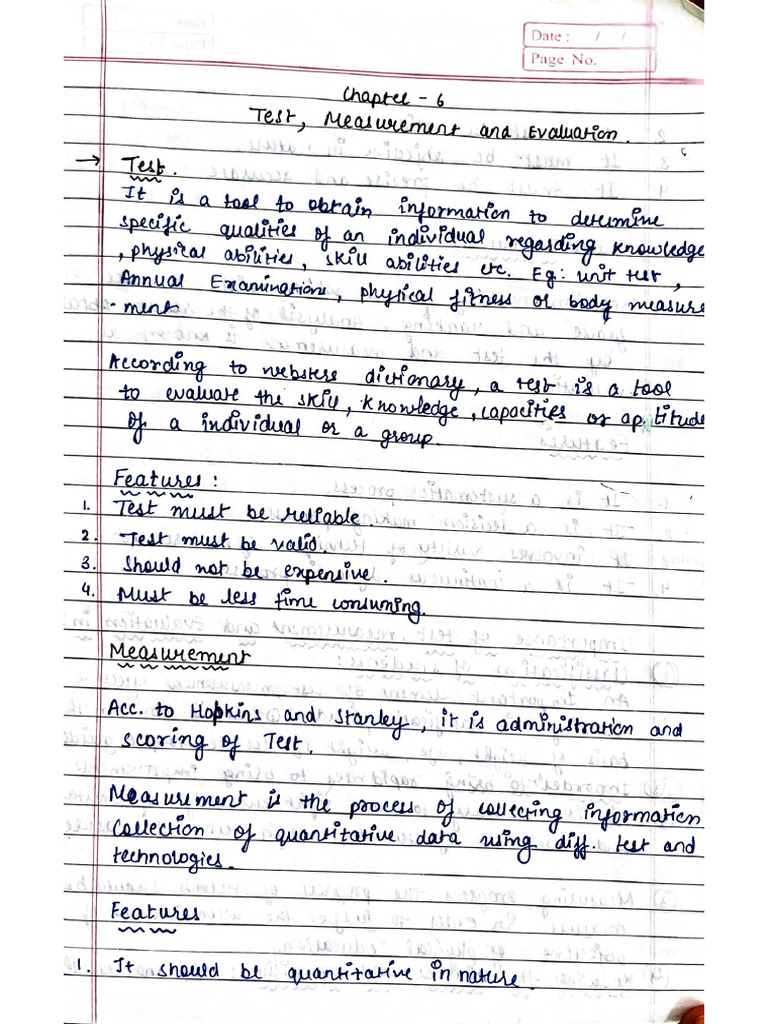 Date: / /
Page No.
Chapter - 6
Test, Measurement and Evaluation.
→ Test.
It is a tool to obtain information to determine
specific qualities of an individual regarding knowledge
, physical abilities, skill abilities etc. Eg: Unit test,
Annual Examinations, physical fitness or body measure
- ment
According to websters dictionary, a test is a tool
to evaluate the skill, knowledge, capacities or aptitude
of a individual or a group.
Features :
1. Test must be reliable.
2. Test must be valid.
3. Should not be expensive.
4. Must be less time consuming.
Measurement
Acc. to Hopkins and Stanley, it is administration and
scoring of Test.
Measurement is the process of collecting information
Collection of quantitative data using diff. test and
technologies.
Features
1. It should be quantitative in nature.